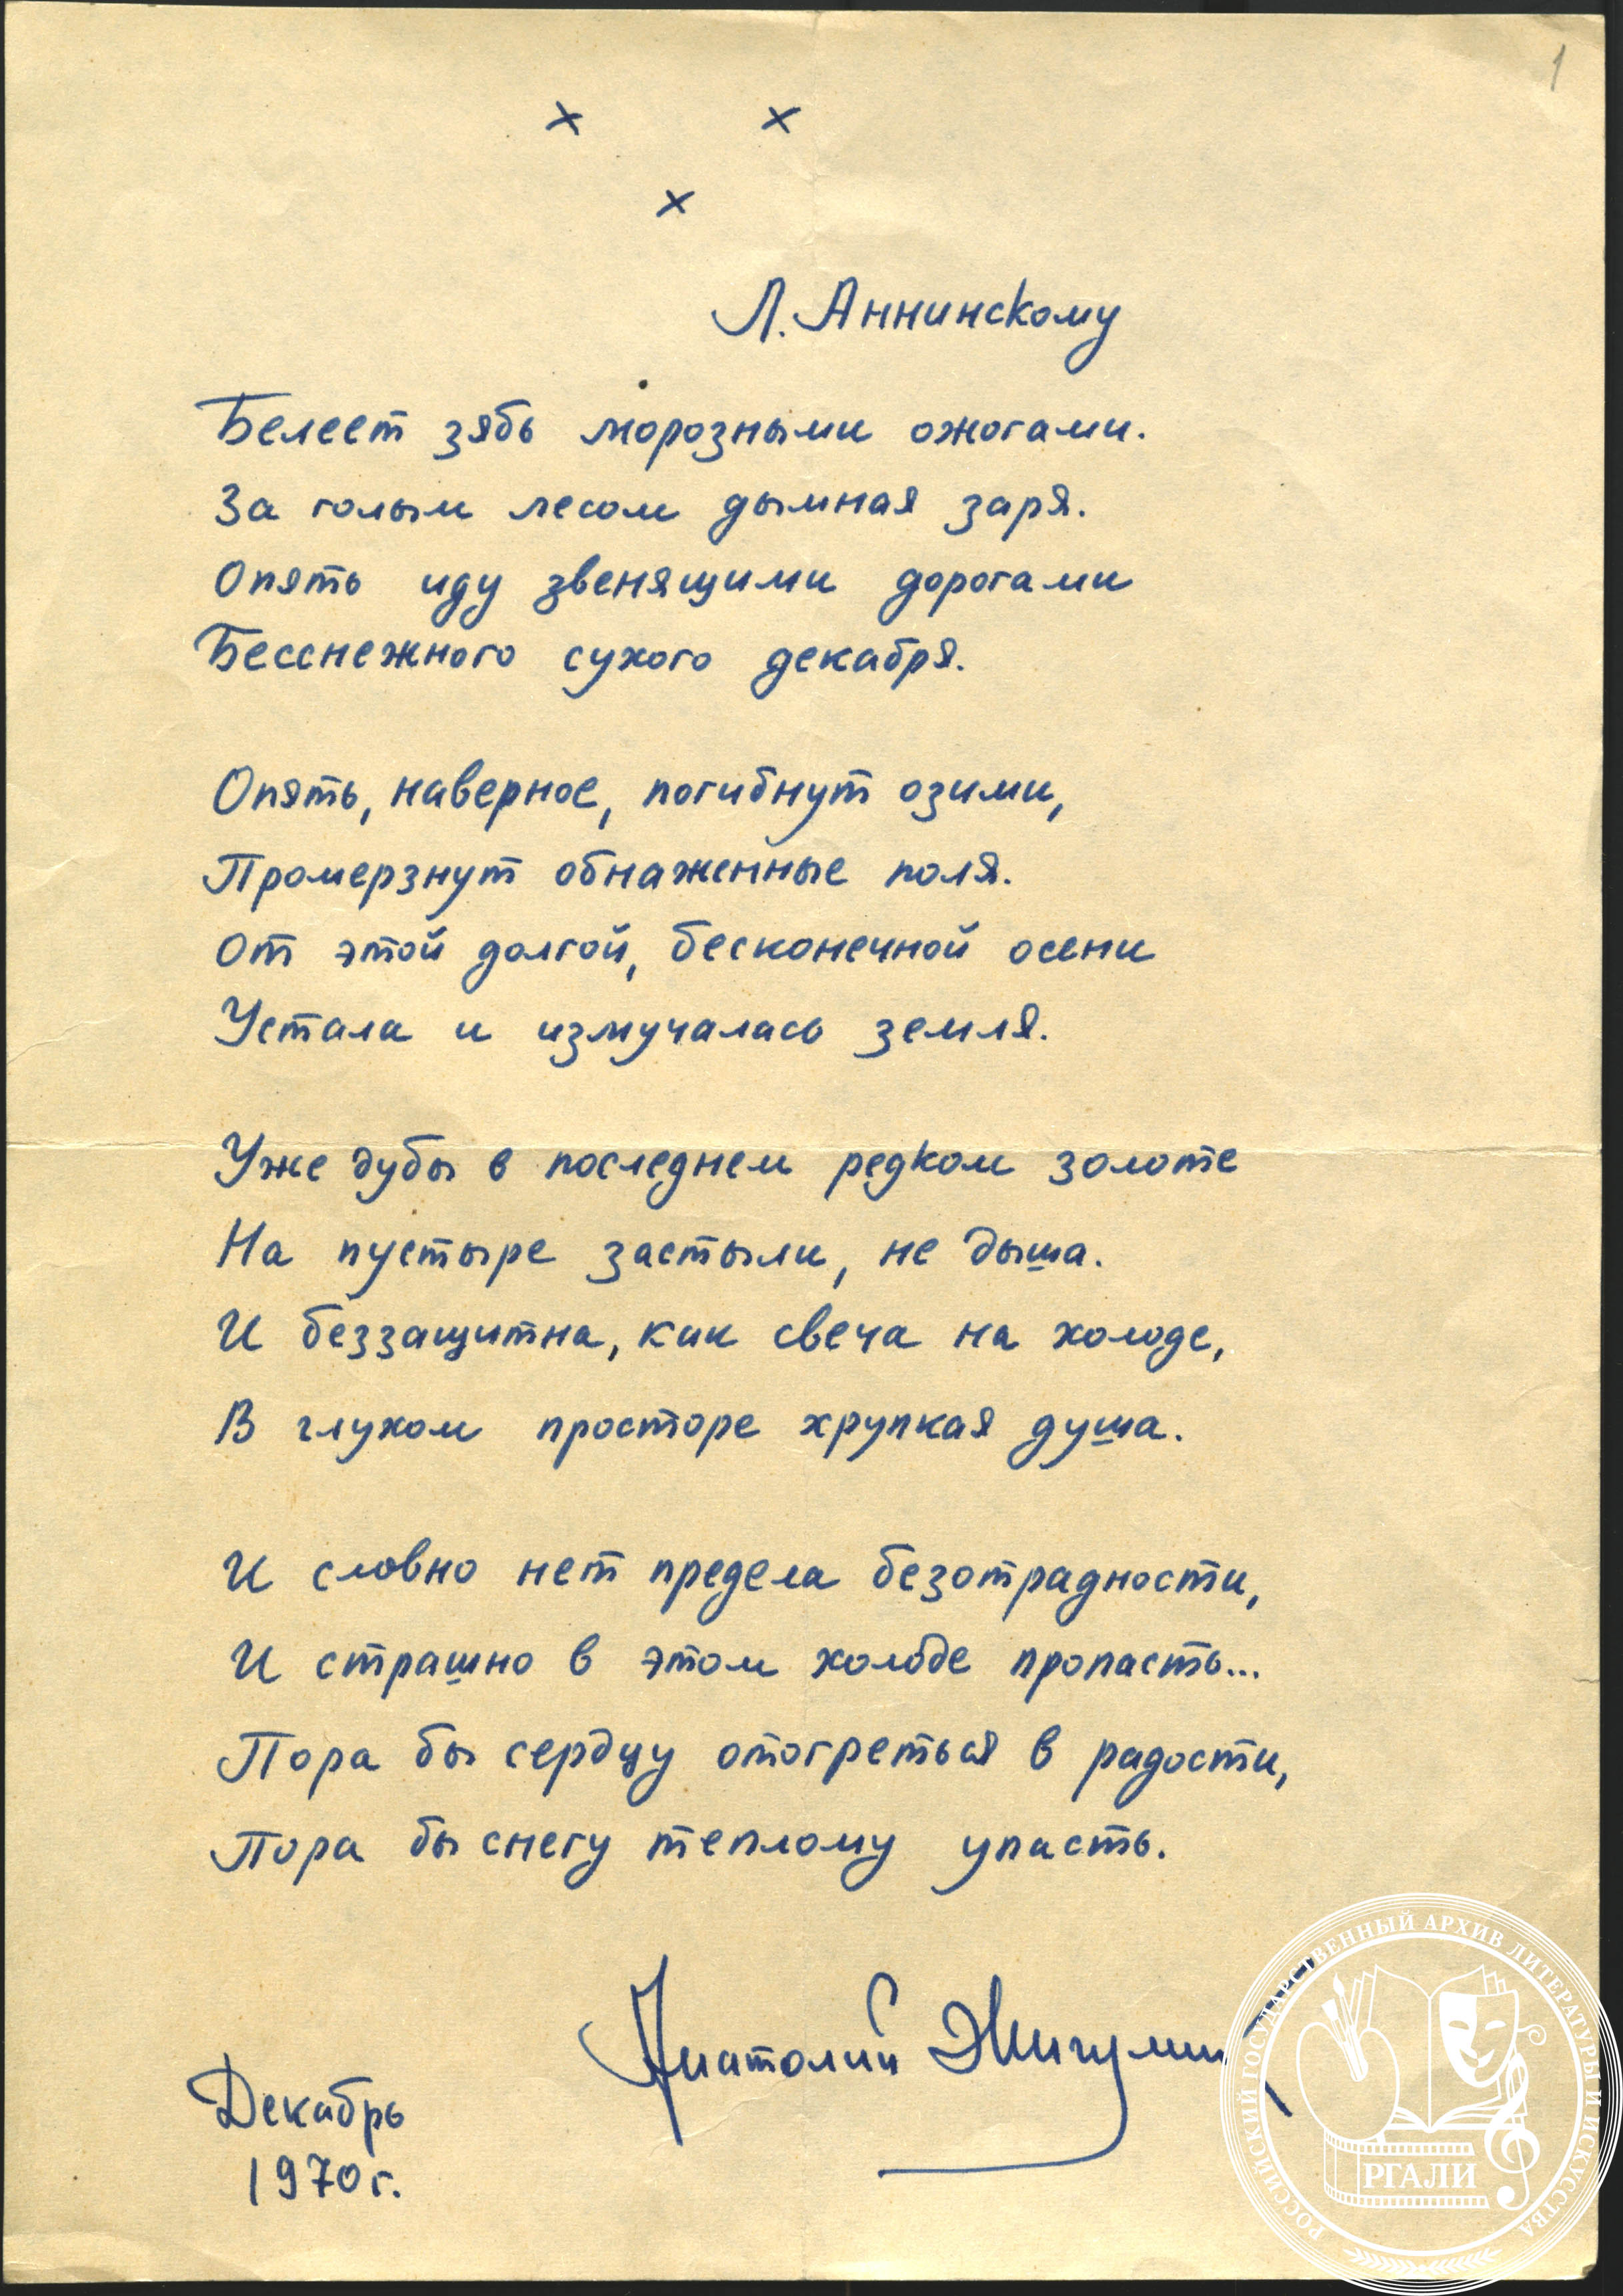 1
х х
х
Л. Аннинскому
Белеет зябь морозными ожогами.
За голым лесом дымная заря.
Опять иду звенящими дорогами
Бесснежного сухого декабря.
Опять, наверное, погибнут озими,
Промерзнут обнаженные поля.
От этой долгой, бесконечной осени
Устала и измучалась земля.
Уже дубы в последнем редком золоте
На пустыре застыли, не дыша.
И беззащитна, как свеча на холоде,
В глухом просторе хрупкая душа.
И словно нет предела безотрадности,
И страшно в этом холоде пропасть...
Пора бы сердцу отогреться в радости,
Пора бы снегу теплому упасть.
Анатолий Жигулин
Декабрь
1970 г.
РОССИЙСКИЙ ГОСУДАРСТВЕННЫЙ АРХИВ ЛИТЕРАТУРЫ И ИСКУССТВА
РГАЛИ